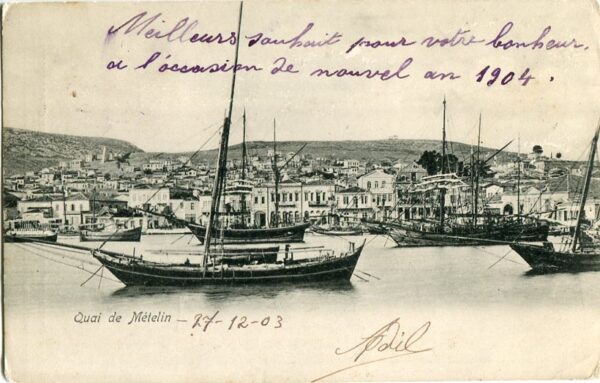 Meilleurs souhait pour votre bonheur,
a l'óccasion de nouvel an 1904.
Quai de Mételin – 27-12-03
Adil